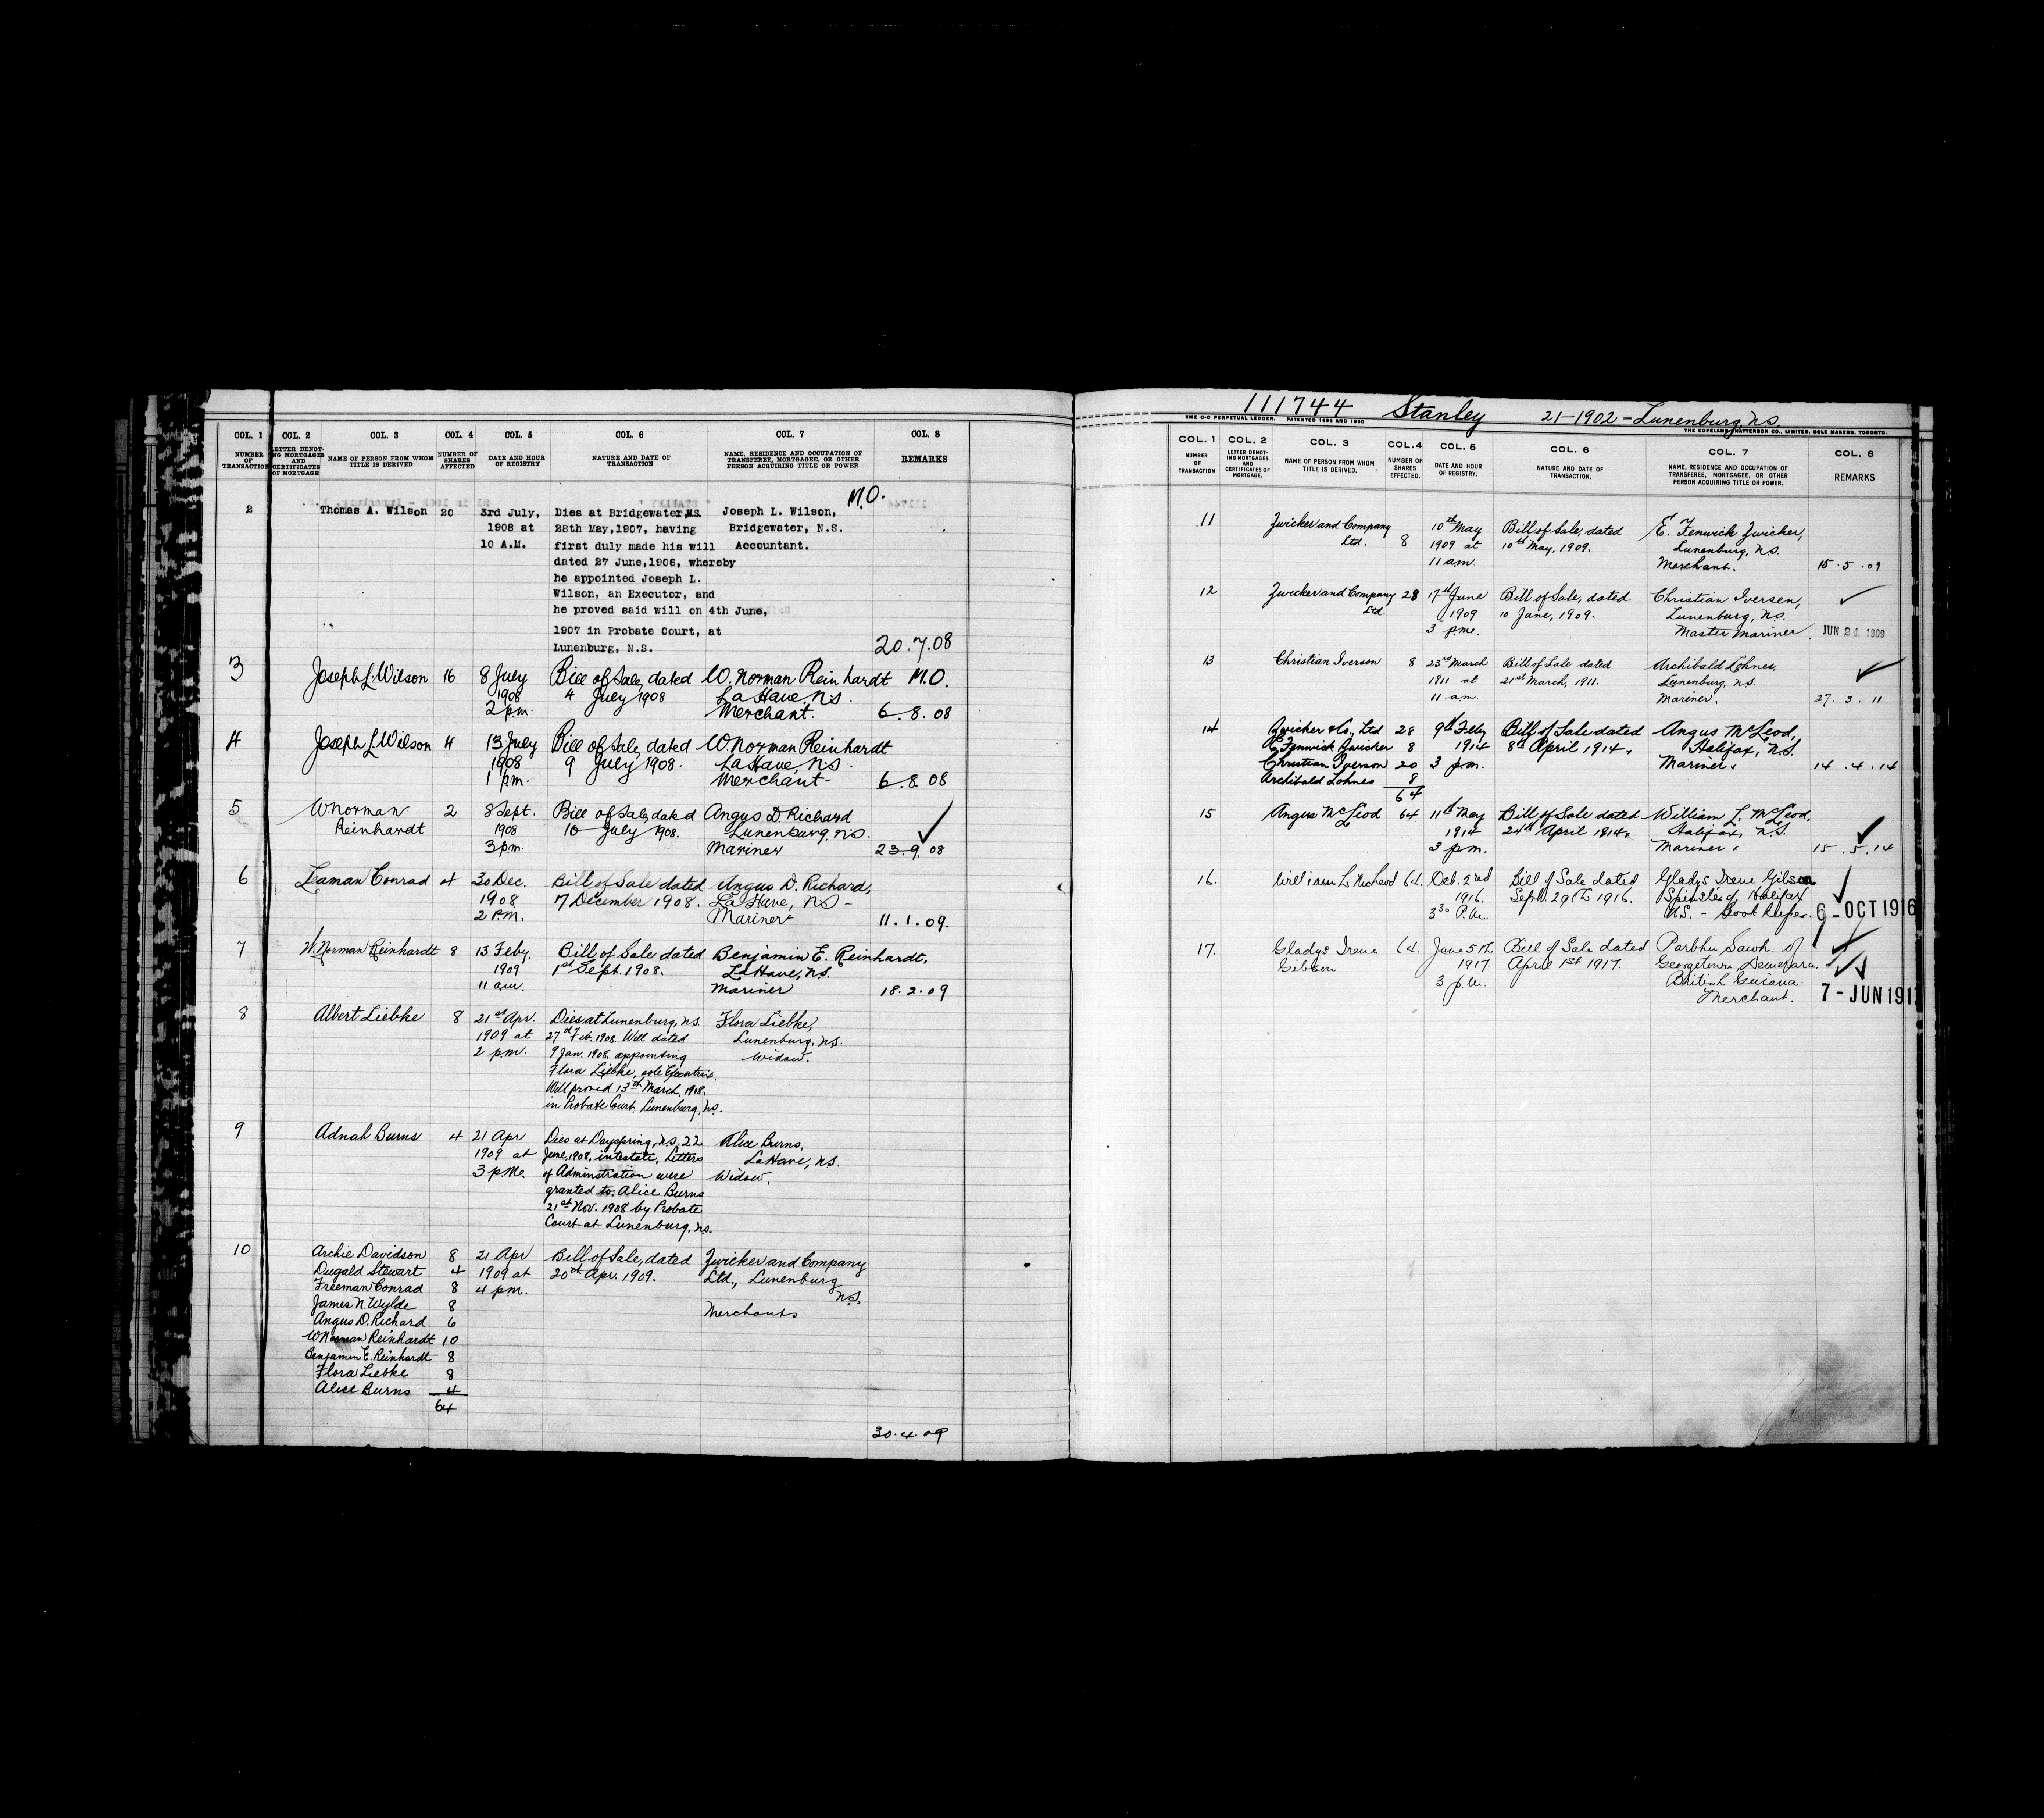 COL. 1 COL. 2 COL. 3 COL. 4 COL. 5 COL. 6 COL. 7 COL. 8
NUMBER OF TRANSACTION
LETTER DENOTING MORTGAGES AND CERTIFICATES OF MORTGAGE
NAME OF PERSON FROM WHOM TITLE IS DERIVED
NUMBER OF SHARES AFFECTED
DATE AND HOUR OF REGISTRY
NATURE AND DATE OF TRANSACTION
NAME, RESIDENCE AND OCCUPATION OF TRANSFEREE, MORTGAGEE, OR OTHER PERSON ACQUIRING TITLE OR POWER
REMARKS
M.O.
2 Thomas A. Wilson 20 3rd July, Dies at Bridgewater,N.S. Joseph L. Wilson,
1908 at 28th May,1907, having Bridgewater, N.S.
10 A.M. first duly made his will Accountant.
dated 27 June,1906, whereby
he appointed Joseph L.
Wilson, an Executor, and
he proved said will on 4th June,
1907 in Probate Court, at
Lunenburg, N.S. 20.7.08
3 Joseph L. Wilson 16 8 July Bill of Sale, dated W. Norman Reinhardt M.O.
1908 4 July 1908 La Have, N.S.
2 p.m. Merchant. 6.8.08
4 Joseph L. Wilson 4 13 July Bill of Sale, dated W. Norman Reinhardt
1908 9 July 1908. La Have, N.S.
1 p.m. Merchant- 6.8.08
5 W Norman 2 8 Sept. Bill of Sale, dated Angus D. Richard
Reinhardt 1908 10 July 1908. Lunenburg, N.S.
3 p.m. Mariner 23.9.08
6 Leaman Conrad 4 30 Dec. Bill of Sale dated Angus D. Richard,
1908 7 December 1908. La Have, N.S-
2 P.M. Mariner 11.1.09.
7 W. Norman Reinhardt 8 13 Feby. Bill of Sale dated Benjamin E. Reinhardt,
1909 1st Sept. 1908. La Have, N.S.
11 am. Mariner 18.2.09
8 Albert Liebke 8 21st Apr. Dies at Lunenburg, N.S. Flora Liebke,
1909 at 27th Feb. 1908. Will dated Lunenburg, N.S.
2 p.m. 9 Jan. 1908. appointing Widow.
Flora Liebke, sole Executrix.
Will proved 13th March, 1908.
in Probate Court. Lunenburg, N.S.
9 Adnah Burns 4 21 Apr Dies at Dayspring, N.S. 22 Alice Burns,
1909 at June, 1908, intestate, Letters LaHave, N.S.
3 p.m. of Adminstration were Widow.
granted to Alice Burns
21st Nov. 1908 by Probate
Court at Lunenburg, N.S.
10 Archie Davidson 8 21 Apr Bill of Sale, dated Zwicker and Company
Dugald Stewart 4 1909 at 20th Apr. 1909. Ltd., Lunenburg
Freeman Conrad 8 4 p.m. N.S.
James N. Wylde 8 Merchants
Angus D. Richard 6
W Norman Reinhardt 10
Benjamin E. Reinhardt 8
Flora Liebke 8
Alice Burns 4
64
30.4.09
111744 Stanley 21-1902 = Lunenburg, N.S.
THE C-C PERPETUAL LEDGER. PATENTED 1898 AND 1900
THE COPELAND-CHATTERSON CO., LIMITED, SOLE MAKERS, TORONTO.
COL. 1 COL. 2 COL. 3 COL. 4 COL. 5 COL. 6 COL. 7 COL. 8
NUMBER OF TRANSACTION
LETTER DENOTING MORTGAGES AND CERTIFICATES OF MORTGAGE.
NAME OF PERSON FROM WHOM TITLE IS DERIVED.
NUMBER OF SHARES EFFECTED.
DATE AND HOUR OF REGISTRY.
NATURE AND DATE OF TRANSACTION.
NAME, RESIDENCE AND OCCUPATION OF TRANSFEREE, MORTGAGEE, OR OTHER PERSON ACQUIRING TITLE OR POWER.
REMARKS
11 Zwicker and Company 10th May Bill of Sale, dated E. Fenwick Zwicker,
Ltd. 8 1909 at 10th May, 1909. Lunenburg, N.S.
11 am Merchant. 15.5.09
12 Zwicker and Company 28 17th June Bill of Sale, dated Christian Iversen,
Ltd 1909 10 June, 1909. Lunenburg, N.S.
3 pm. Master Mariner JUN 24 1909
13 Christian Iverson 8 23rd March Bill of Sale dated Archibald Lohnes,
1911 at 21st March, 1911. Lunenburg, N.S.
11 am. Mariner. 27.3.11
14 Zwicker & Co., Ltd 28 9th Feby Bill of Sale dated Angus McLeod,
E. Fenwick Zwicker 8 1914 8th April 1914. Halifax, N.S.
Christian Iverson 20 3 pm. Mariner. 14.4.14
Archibald Lohnes 8
64
15 Angus McLeod 64 11th May Bill of Sale dated William L. McLeod,
1914 24th April 1914. Halifax, N.S.
3 pm. Mariner. 15.5.14
16. William L McLeod 64. Oct. 2nd Bill of Sale dated Gladys Irene Gibson
1916. Sept. 29th 1916. Spinster of Halifax
3 30 P.M. N.S. - Book Keeper. 6-OCT 1916
17. Gladys Irene 64. June 5th Bill of Sale dated Parbhu Sawh of
Gibson 1917. April 1st 1917. Georgetown Demerara
3 p.m. British Guiana.
Merchant. 7-JUN 191